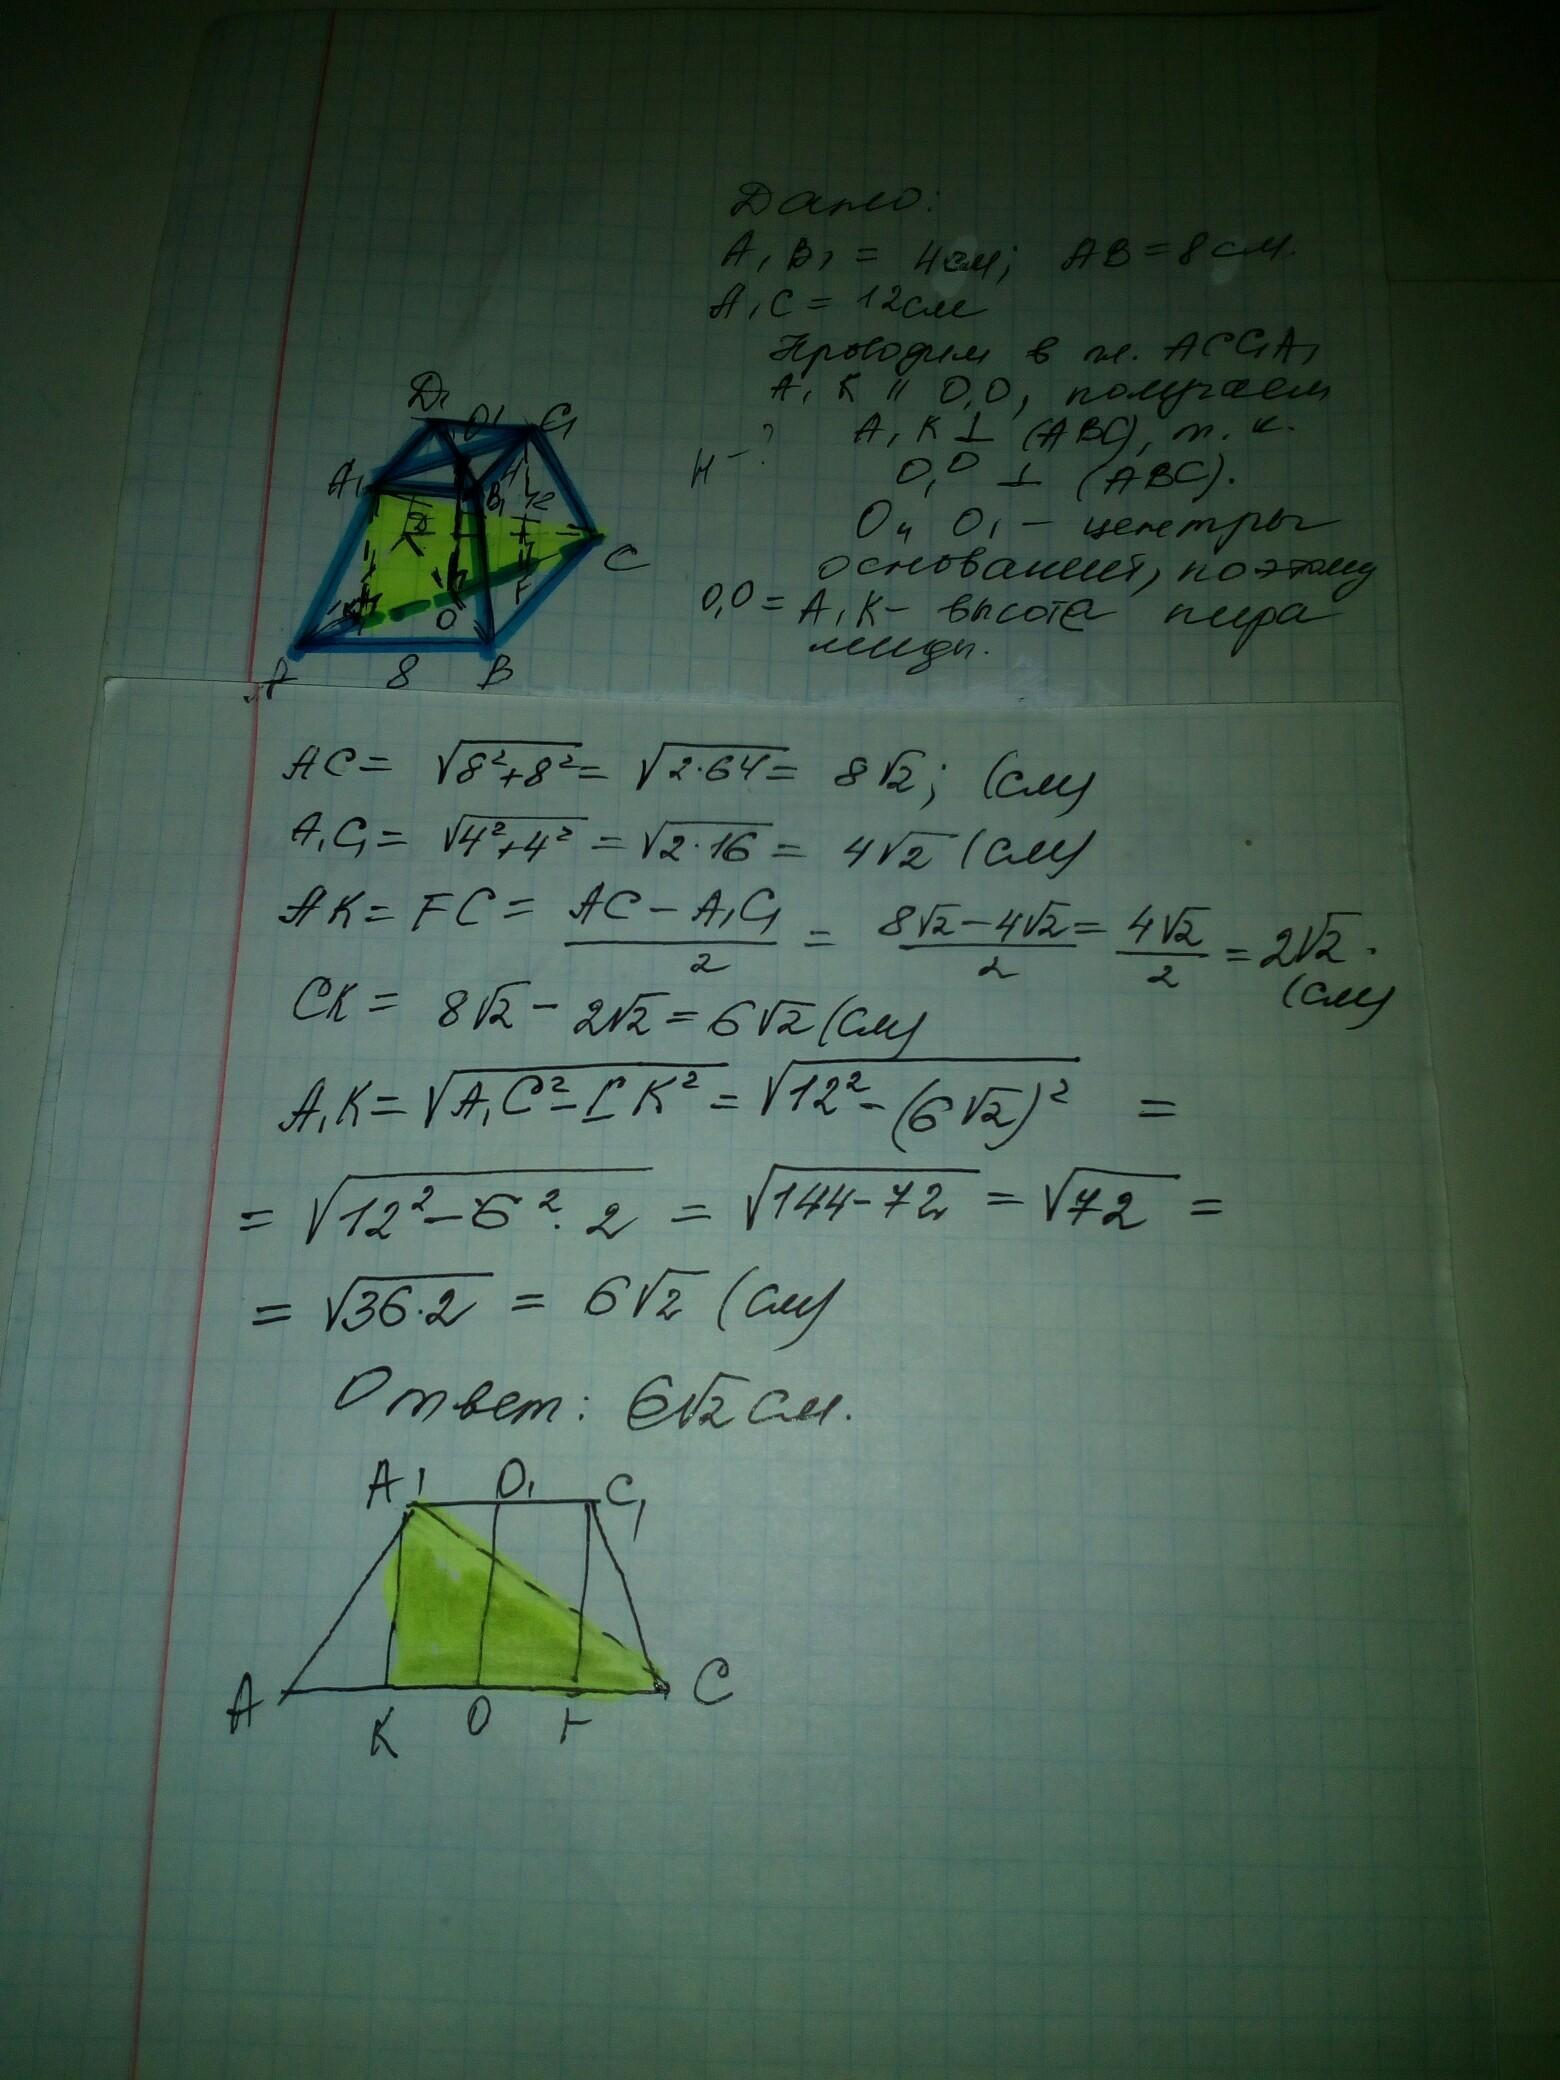 Дано:
A₁B₁ = 4см; AB = 8см.
A₁C = 12см
Проводим в пл. ACC₁A₁
A₁K || O₁O, получаем
A₁K ⊥ (ABC), т. к.
H - ?
O₁O ⊥ (ABC).
O и O₁ - центры
оснований, поэтому
O₁O = A₁K - высота пира
миды.
D₁ O₁ C₁
A₁ B₁
K O F C
A 8 B
AC = √(8²+8²) = √(2·64) = 8√2; (см)
A₁C₁ = √(4²+4²) = √(2·16) = 4√2 (см)
AK = FC = (AC - A₁C₁)/2 = (8√2 - 4√2)/2 = 4√2/2 = 2√2.
(см)
CK = 8√2 - 2√2 = 6√2 (см)
A₁K = √(A₁C² - CK²) = √(12² - (6√2)²) =
= √(12² - 6²·2) = √(144 - 72) = √72 =
= √(36·2) = 6√2 (см)
Ответ: 6√2 см.
A₁ O₁ C₁
A K O F C